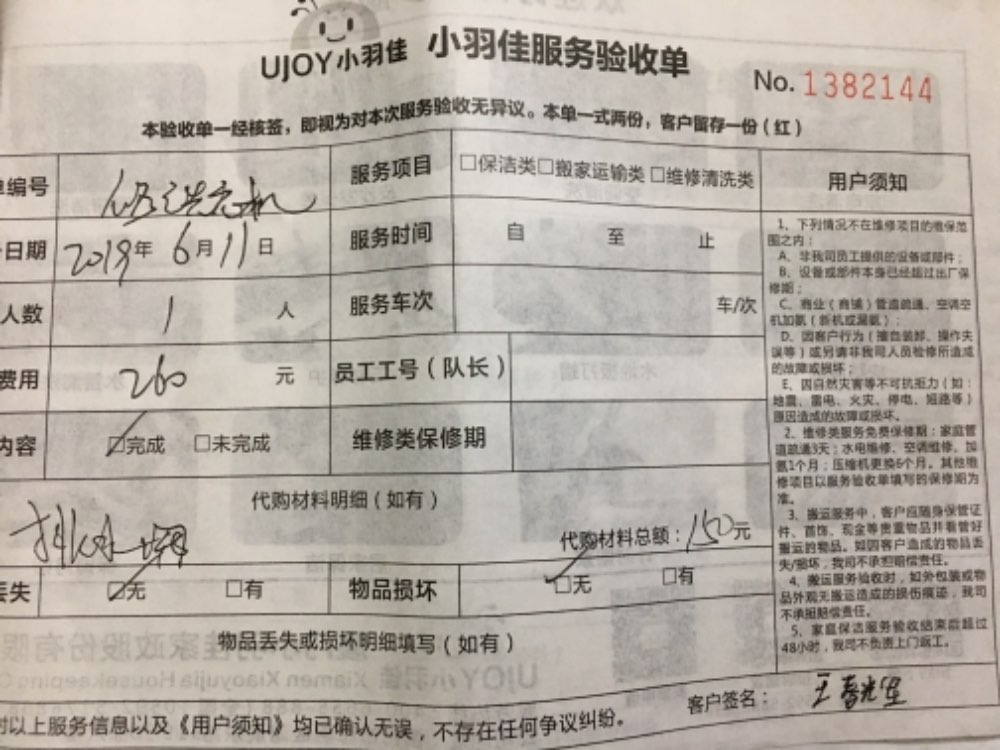 UJOY小羽佳 小羽佳服务验收单
No. 1382144
本验收单一经核签，即视为对本次服务验收无异议。本单一式两份，客户留存一份（红）
单编号 修洗衣机 服务项目 □保洁类□搬家运输类□维修清洗类 用户须知
日期 2019年6月11日 服务时间 自 至 止
人数 1 人 服务车次 车/次
费用 260 元 员工工号（队长）
内容 ☑完成 □未完成 维修类保修期
代购材料明细（如有）
排水 代购材料总额：150元
丢失 ☑无 □有 物品损坏 ☑无 □有
物品丢失或损坏明细填写（如有）
1、下列情况不在维修项目的维保范
围之内：
A、非我司员工提供的设备或部件；
B、设备或部件本身已经超过出厂保
修期；
C、商业（商铺）管道疏通、空调空
机加氨（新机或漏氨）；
D、因客户行为（擅自装卸、操作失
误等）或另请非我司人员检修所造成
的故障或损坏；
E、因自然灾害等不可抗拒力（如：
地震、雷电、火灾、停电、短路等）
原因造成的故障或损坏。
2、维修类服务免费保修期：家庭管
道疏通3天；水电维修、空调维修、加
氨1个月；压缩机更换6个月。其他维
修项目以服务验收单填写的保修期为
准。
3、搬运服务中，客户应随身保管证
件、首饰、现金等贵重物品并看管好
搬运的物品。如因客户造成的物品丢
失/损坏，我司不承担赔偿责任。
4、搬运服务验收时，如外包装或物
品外观无搬运造成的损伤痕迹，我司
不承担赔偿责任。
5、家庭保洁服务验收结束后超过
48小时，我司不负责上门返工。
客户签名：王
对以上服务信息以及《用户须知》均已确认无误，不存在任何争议纠纷。